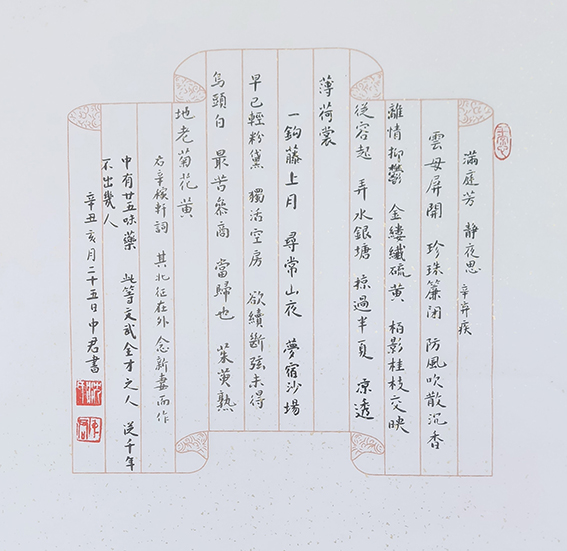 滿庭芳 靜夜思 辛弃疾
雲母屏開 珍珠簾闭 防風吹散沉香
離情抑鬱 金縷織硫黄 柏影桂枝交映
從容起 弄水銀塘 掠過半夏 凉透
薄荷裳
一鈎藤上月 尋常山夜 夢宿沙場
早已輕粉黛 獨活空房 欲續斷弦未得
烏頭白 最苦參商 當歸也 茱萸熟
地老菊花黄
右辛稼軒詞 其北征在外 念新妻而作
中有廿五味藥 此等文武全才之人 送千年
不出幾人
辛丑亥月二十五日中君書